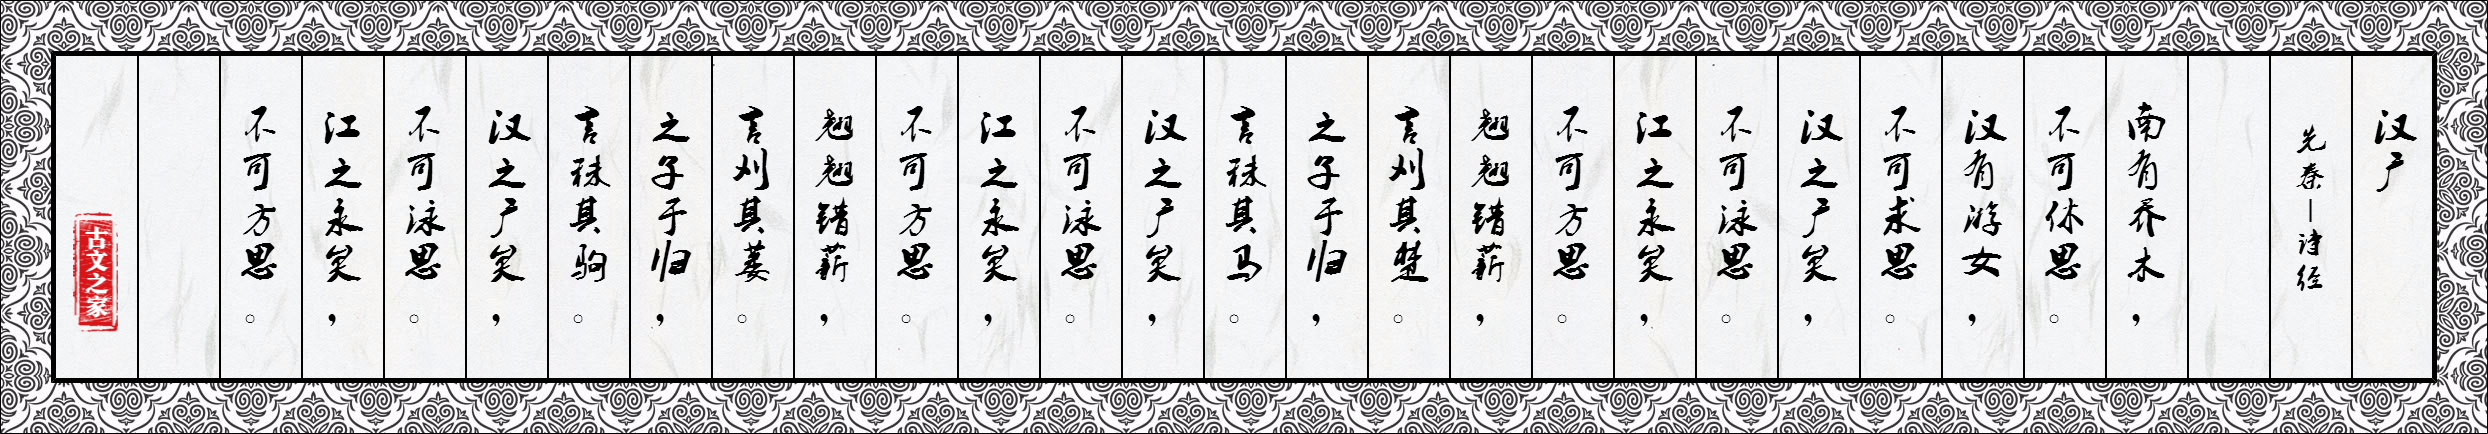 汉广
先秦－诗经
南有乔木，
不可休思。
汉有游女，
不可求思。
汉之广矣，
不可泳思。
江之永矣，
不可方思。
翘翘错薪，
言刈其楚。
之子于归，
言秣其马。
汉之广矣，
不可泳思。
江之永矣，
不可方思。
翘翘错薪，
言刈其蒌。
之子于归，
言秣其驹。
汉之广矣，
不可泳思。
江之永矣，
不可方思。
古文之家